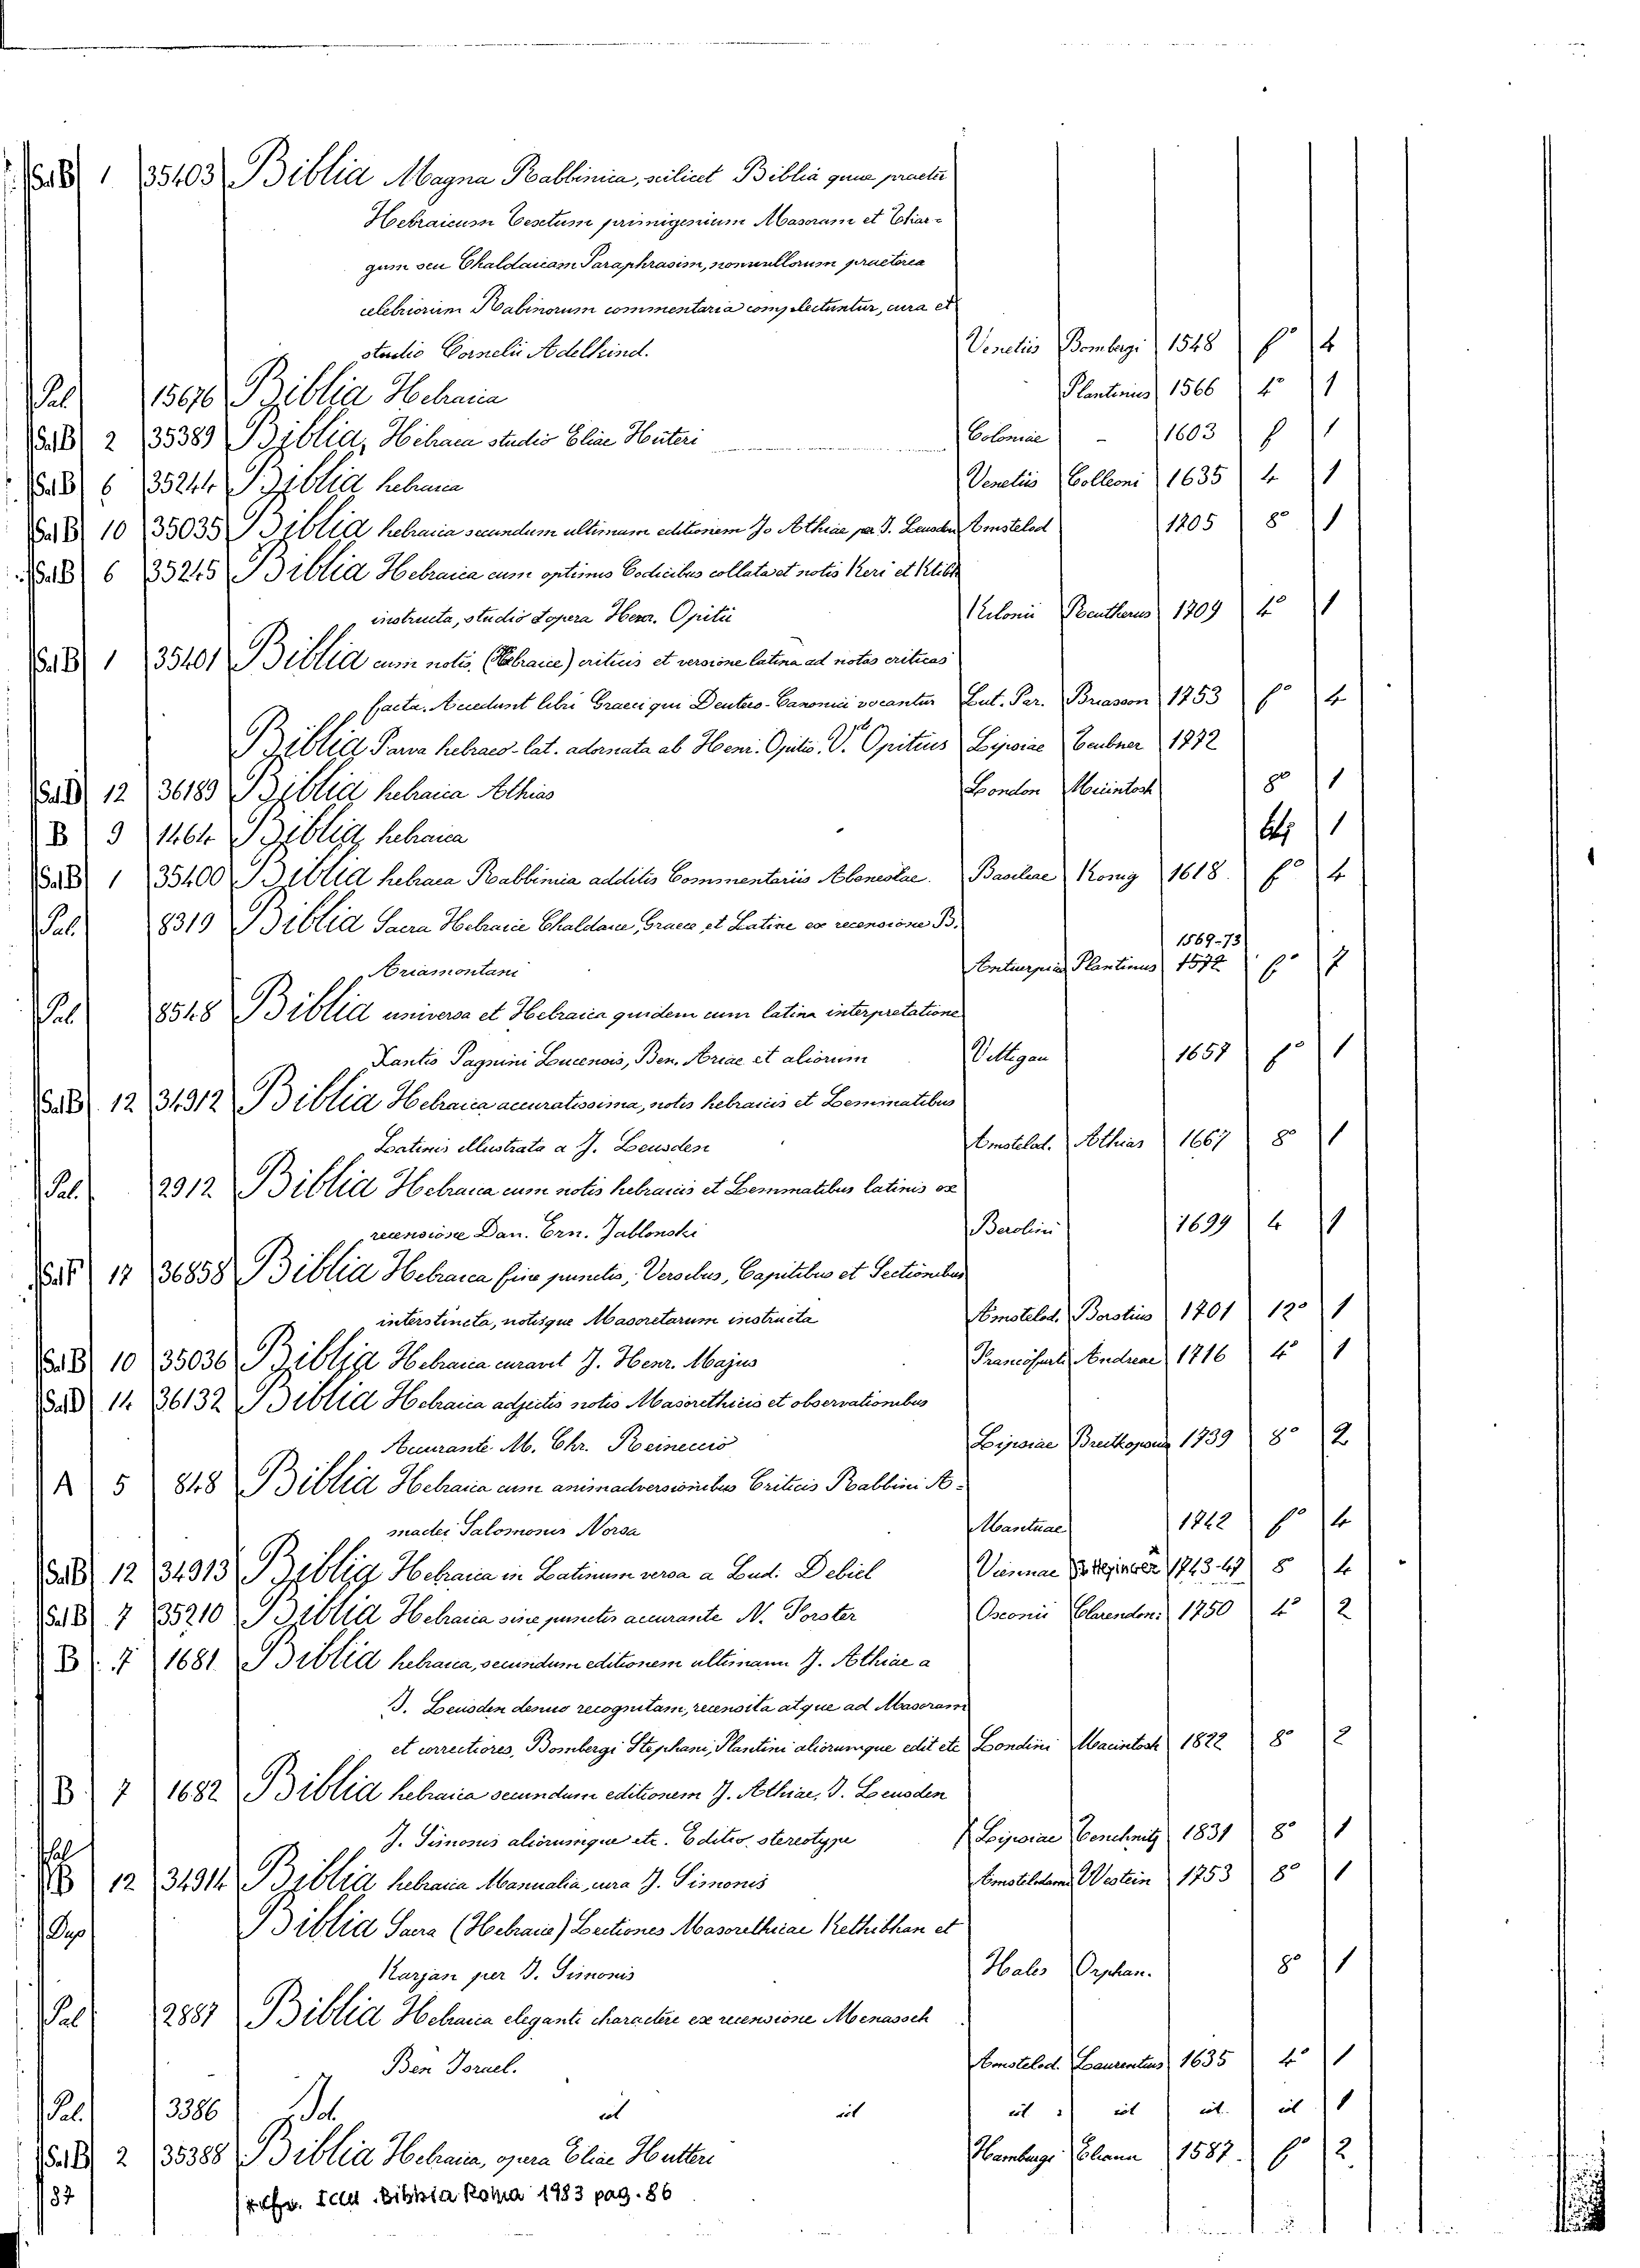 Sal B 1 35403 Biblia Magna Rabbinica, scilicet Biblia quae praeter
Hebraicum Textum primigenium Masoram et Thar-
gum seu Chaldaicam Paraphrasim, nonnullorum praeterea
celebriorum Rabinorum commentaria complectuntur, cura et
studio Cornelii Adelkind. Venetiis Bombergi 1548 fº 4
Pal. 15676 Biblia Hebraica Plantinus 1566 4º 1
Sal B 2 35389 Biblia, Hebraea studio Eliae Huteri Coloniae - 1603 f 1
Sal B 6 35244 Biblia hebraica Venetiis Colleoni 1635 4 1
Sal B 10 35035 Biblia hebraica secundum ultimum editionem Jo Athiae per J. Leusden Amstelod 1705 8º 1
Sal B 6 35245 Biblia Hebraica cum optimis Codicibus collata et notis Keri et Ktibh
instructa, studio Lopera Henr. Opitii Kilonii Reutherus 1709 4º 1
Sal B 1 35401 Biblia cum notis (Hebraice) criticis et versione latina ad notas criticas
facta. Accedunt libri Graeci qui Deutero-Canonici vocantur Lut. Par. Briasson 1753 fº 4
Biblia Parva hebraeo-lat. adornata ab Henr. Opitio. V. Opitius Lipsiae Teubner 1772
Sal D 12 36189 Biblia hebraica Athias London Macintosh 8º 1
B 9 1464 Biblia hebraica 1
Sal B 1 35400 Biblia hebraea Rabbinica additis Commentariis Abeneslae. Basileae König 1618. fº 4
Pal. 8319 Biblia Sacra Hebraice Chaldaice, Graece, et Latine ex recensione B.
1569-73
Ariamontani Antuerpiae Plantinus 1572 fº 7
Pal. 8548 Biblia universa et Hebraica quidem cum latina interpretatione
Xantis Pagnini Lucensis, Ben. Ariae et aliorum 1657 fº 1
Sal B 12 34912 Biblia Hebraica accuratissima, notis hebraicis et Lemmatibus
Latinis illustrata a J. Leusden Amstelod. Athias 1667 8º 1
Pal. 2912 Biblia Hebraica cum notis hebraicis et Lemmatibus latinis ex
recensione Dan. Ern. Jablonski Berolini 1699 4 1
17 36858 Biblia Hebraica sine punctis, Versibus, Capitibus et Sectionibus
interstincta, notisque Masoretarum instructa Amstelod. Borstius 1701 12º 1
Sal B 10 35036 Biblia Hebraica curavit J. Henr. Majus Francofurti Andreae 1716 4º 1
Sal D 14 36132 Biblia Hebraica adjectis notis Masorethicis et observationibus
Accurante M. Chr. Reineccio Lipsiae Breitkopius 1739 8º 2
A 5 848 Biblia Hebraica cum animadversionibus Criticis Rabbini A-
madei Salomonis Norsa Mantuae 1742 fº 4
Sal B 12 34913 Biblia Hebraica in Latinum versa a Lud. Debiel Viennae 1743-47 8 4
Sal B 7 35210 Biblia Hebraica sine punctis accurante N. Forster Oxonii Clarendon. 1750 4º 2
B. 7 1681 Biblia hebraica, secundum editionem ultimam J. Athiae a
J. Leusden denuo recognitam, recensita atque ad Masoram
et correctiores, Bombergi Stephani, Plantini aliorumque edit etc Londini Macintosh 1822 8º 2
B. 7 1682 Biblia hebraica secundum editionem J. Athiae, J. Leusden
J. Simonis aliorumque etc. Editio stereotype Lipsiae Tauchnitz 1831 8º 1
12 34914 Biblia hebraica Manualia, cura J. Simonis Amstelodami Westein 1753 8º 1
Dup Biblia Sacra (Hebraice) Lectiones Masorethicae Kethibhan et
Karjan per J. Simonis Hales Orphan. 8º 1
Pal 2887 Biblia Hebraica eleganti charactere ex recensione Menasseh
Ben Israel. Amstelod. Laurentius 1635 4º 1
Pal. 3386 Id. id id id id id. id 1
Sal B 2 35388 Biblia Hebraica, opera Eliae Hutteri Hamburgi Eliana 1587. fº 2
87 Bibbia Roma 1983 pag. 86